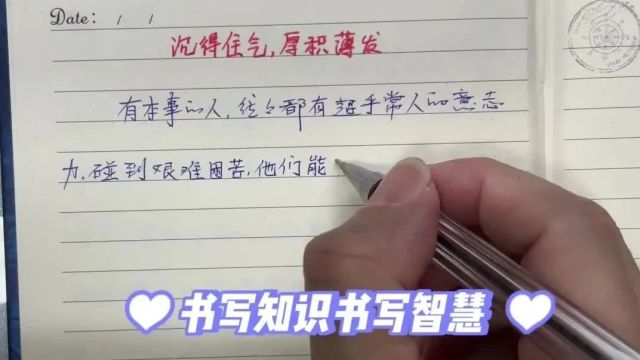 Date: / /
沉得住气,厚积薄发
有本事的人,往往都有超乎常人的意志
力.碰到艰难困苦,他们能
书写知识书写智慧